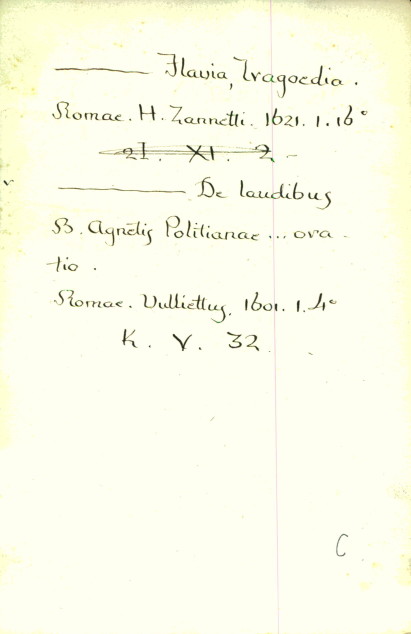 ——— Flavia, Tragoedia.
Romae. H. Zannetti. 1621. 1. 16°
21. XI. 2 -
——— De laudibus
B. Agnetis Politianae ... ora-
tio.
Romae. Vulliettus, 1601. 1. 4°
K. V. 32
C